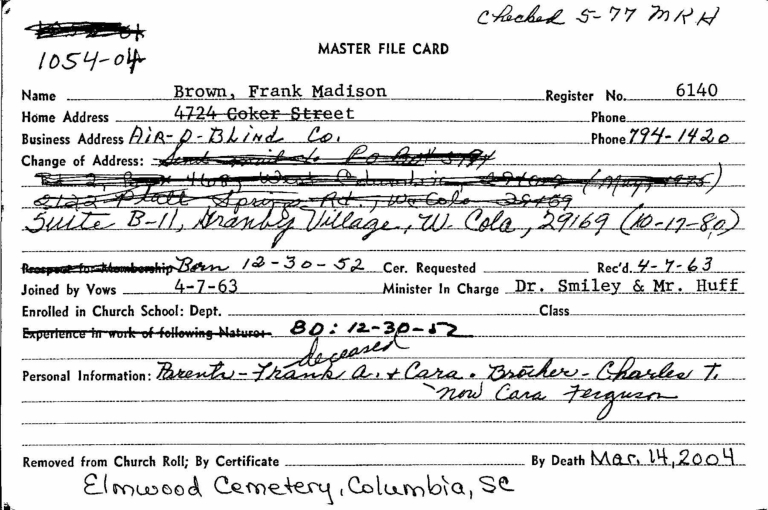 Checked 5-77 MRH
1054-04
MASTER FILE CARD
Name Brown, Frank Madison Register No. 6140
Home Address 4724 Coker Street Phone
Business Address Air-O-Blind Co. Phone 794-1420
Change of Address: Send mail to P O Box
Rt 2, Box 468, West Columbia, (May, 1975)
2122 Platt Springs Rd, W. Cola 29169
Suite B-11, Granby Village, W. Cola, 29169 (10-17-80)
Prospect for Membership Born 12-30-52 Cer. Requested Rec'd. 4-7-63
Joined by Vows 4-7-63 Minister In Charge Dr. Smiley & Mr. Huff
Enrolled in Church School: Dept. Class
Experience in work of following Nature: BD: 12-30-52
deceased
Personal Information: Parents - Frank A. + Cara. Brother - Charles T.
now Cara Ferguson
Removed from Church Roll; By Certificate By Death Mar. 14, 2004
Elmwood Cemetery, Columbia, SC